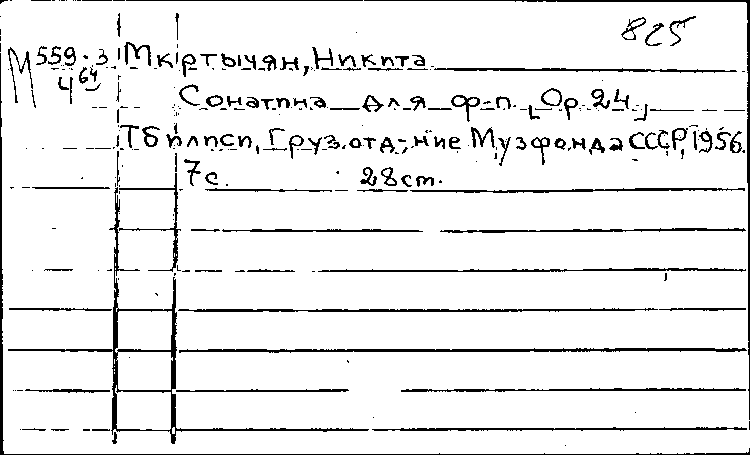 825
М 559.3 Мкртычян, Никита
4 64
Сонатина для ф-п. [Op. 24.]
Тбилиси, Груз. отд-ние Музфонда СССР, 1956.
7с. 28cm.